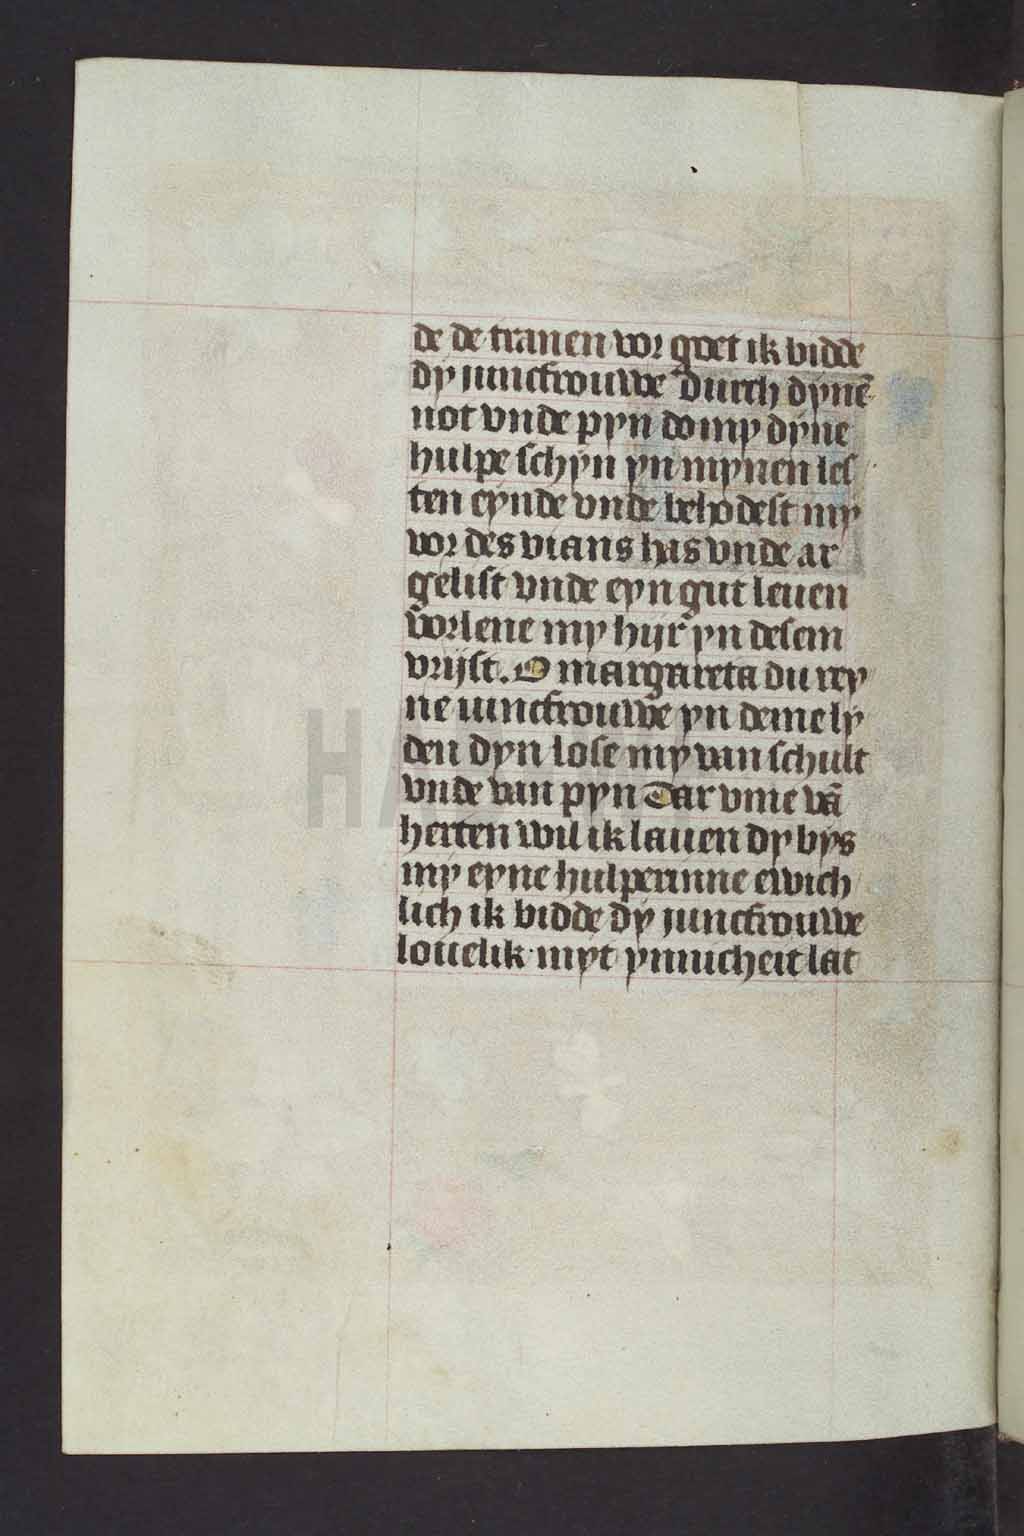 de de tranen vor goet ik bidde
dy juncfrouwe durch dynē
not vnde pyn do my dyne
hulpe schyn yn mynen les
ten eynde vnde behodest my
vor des vians has vnde ar
gelist vnde eyn gut leuen
vorlene my hijr yn desem
vrijst. O margareta du rey
ne iuncfrouwe yn deme ly
den dyn lose my van schult
vnde van pyn Dar vme vā
herten wil ik lauen dy bys
my eyne hulperinne ewich
lich ik bidde dy juncfrouwe
louelik myt ynnicheit lat